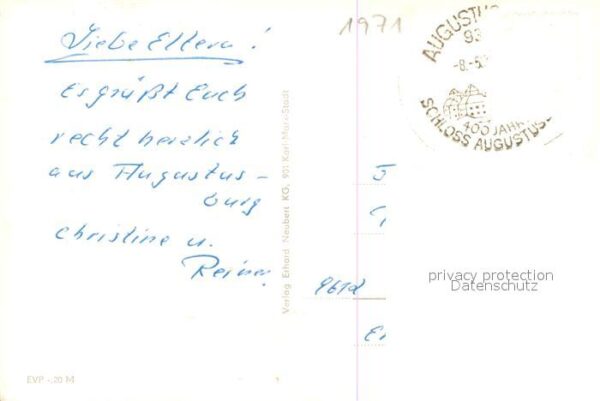 Liebe Eltern!
Es grüßt Euch
recht herzlich
aus Augustus-
burg
Christine u.
Reiner.
1971
AUGUSTUS
93
-8.-5.
400 JAHR
SCHLOSS AUGUSTUS
Verlag Erhard Neubert KG, 901 Karl-Marx-Stadt
9612
privacy protection
Datenschutz
EVP -.20 M